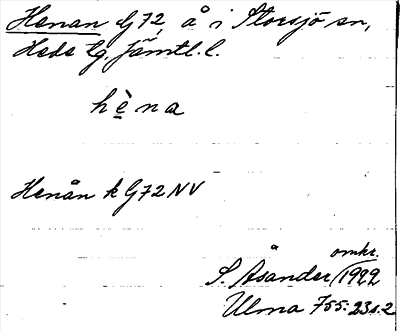 Henan G72, å i Storsjö sn,
Heds tg, Jämtl. l.
hè̱na
Henån k G72 NV
omkr.
S. Åsander/1922
Ulma 755:23 s. 2